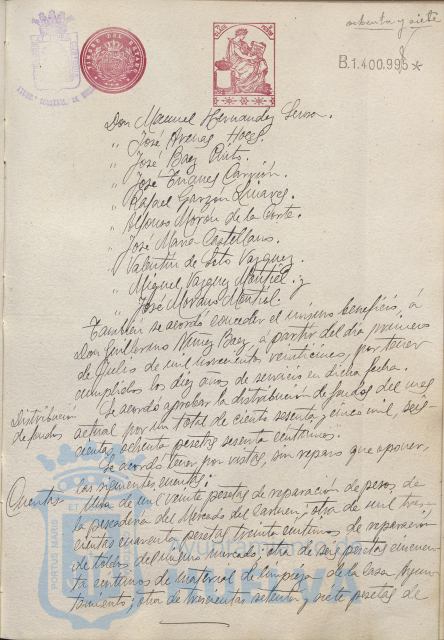 ochenta y siete
TIMBRE DEL ESTADO
B.1.400.995*
Don Manuel Hernandez Gerson.
" José Arenas Hoces.
" José Baez Pinto.
" José Infantes Carrión.
" Rafael Garzón Linares.
" Alfonso Morón de la Corte.
" José Maria Castellano.
" Valentin de Soto Vazquez.
" Miguel Vazquez Montiel y
" José Morano Montiel.
Tambien se acordó conceder el mismo beneficio, á
Don Guillermo Nuñez Baez, á partir del dia primero
de Julio de mil novecientos veinticinco, por tener
cumplidos los diez años de servicio en dicha fecha.
Distribución
de fondos
Se acordó aprobar la distribución de fondos del mes
actual por un total de ciento sesenta y cinco mil, seis-
cientas ochenta pesetas sesenta centimos.
Se acordó tener por vistas, sin reparo que oponer,
Cuentas
las siguientes cuentas:
Una de mil veinte pesetas de reparación de pesos de
la pescaderia del Mercado del Carmen; otra de mil tres-
cientas cuarenta pesetas treinta centimos de reparación
de toldos del mismo mercado; otra de seis pesetas cincuen-
ta centimos de material de limpieza de la casa Ayun-
tamiento; otra de trescientas setenta y siete pesetas de
PORTUS MARIS ET